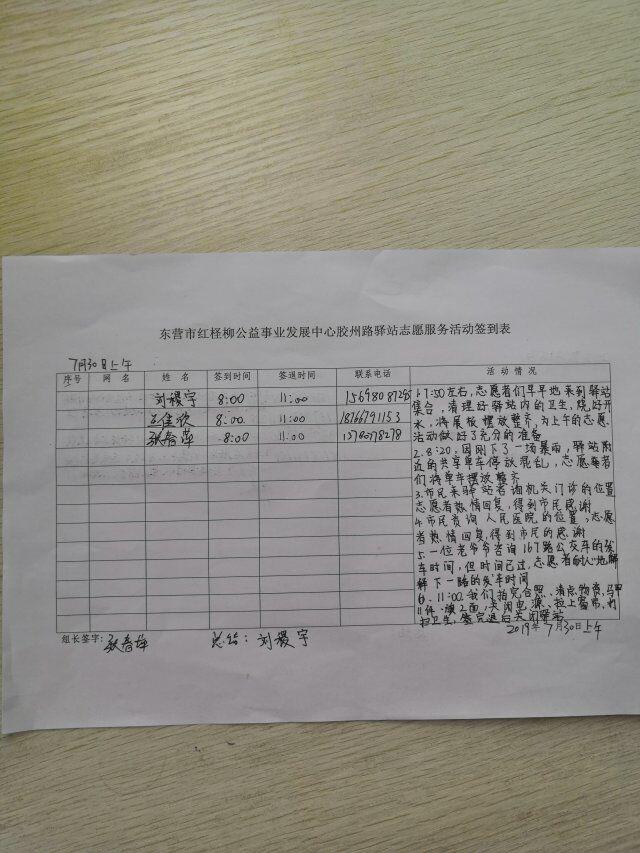 东营市红柽柳公益事业发展中心胶州路驿站志愿服务活动签到表
7月30日上午
序号 网 名 姓 名 签到时间 签退时间 联系电话 活 动 情 况
刘稷宇 8:00 11:00
8:00 11:00 18766791153
张春萍 8:00 11:00
1.7:50左右,志愿者们早早地来到驿站
集合,清理好驿站内的卫生,烧好开
水,将展板摆放整齐,为上午的志愿
活动做好了充分的准备
2.8:20,因刚下了一场暴雨,驿站附
近的共享单车停放混乱,志愿者
们将单车摆放整齐
3.市民来驿站咨询机关门诊的位置
志愿者热情回复,得到市民感谢
4.市民咨询人民医院的位置,志愿
者热情回复,得到市民的感谢
5.一位老爷爷咨询167路公交车的发
车时间,但时间已过,志愿者耐心地解
释下一路的发车时间
6、11:00.我们拍完合照,清点物资,马甲
11件,旗2面,关闭电源、拉上窗帘,打
扫卫生,签完退后关闭驿站
2019年7月30日上午
组长签字: 张春萍 总结:刘稷宇